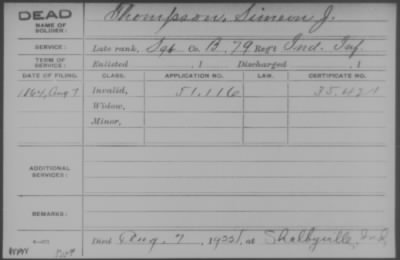 DEAD
NAME OF SOLDIER: Thompson, Simeon J.
SERVICE: Late rank, Sgt. Co. B, 79 Reg't Ind. Inf.
TERM OF SERVICE: Enlisted , 1 Discharged , 1
DATE OF FILING. CLASS. APPLICATION NO. LAW. CERTIFICATE NO.
1864, Aug 7 Invalid, 51.116 35.421
Widow,
Minor,
ADDITIONAL SERVICES:
REMARKS:
Died Aug. 7, 1922, at Shelbyville, Ind.